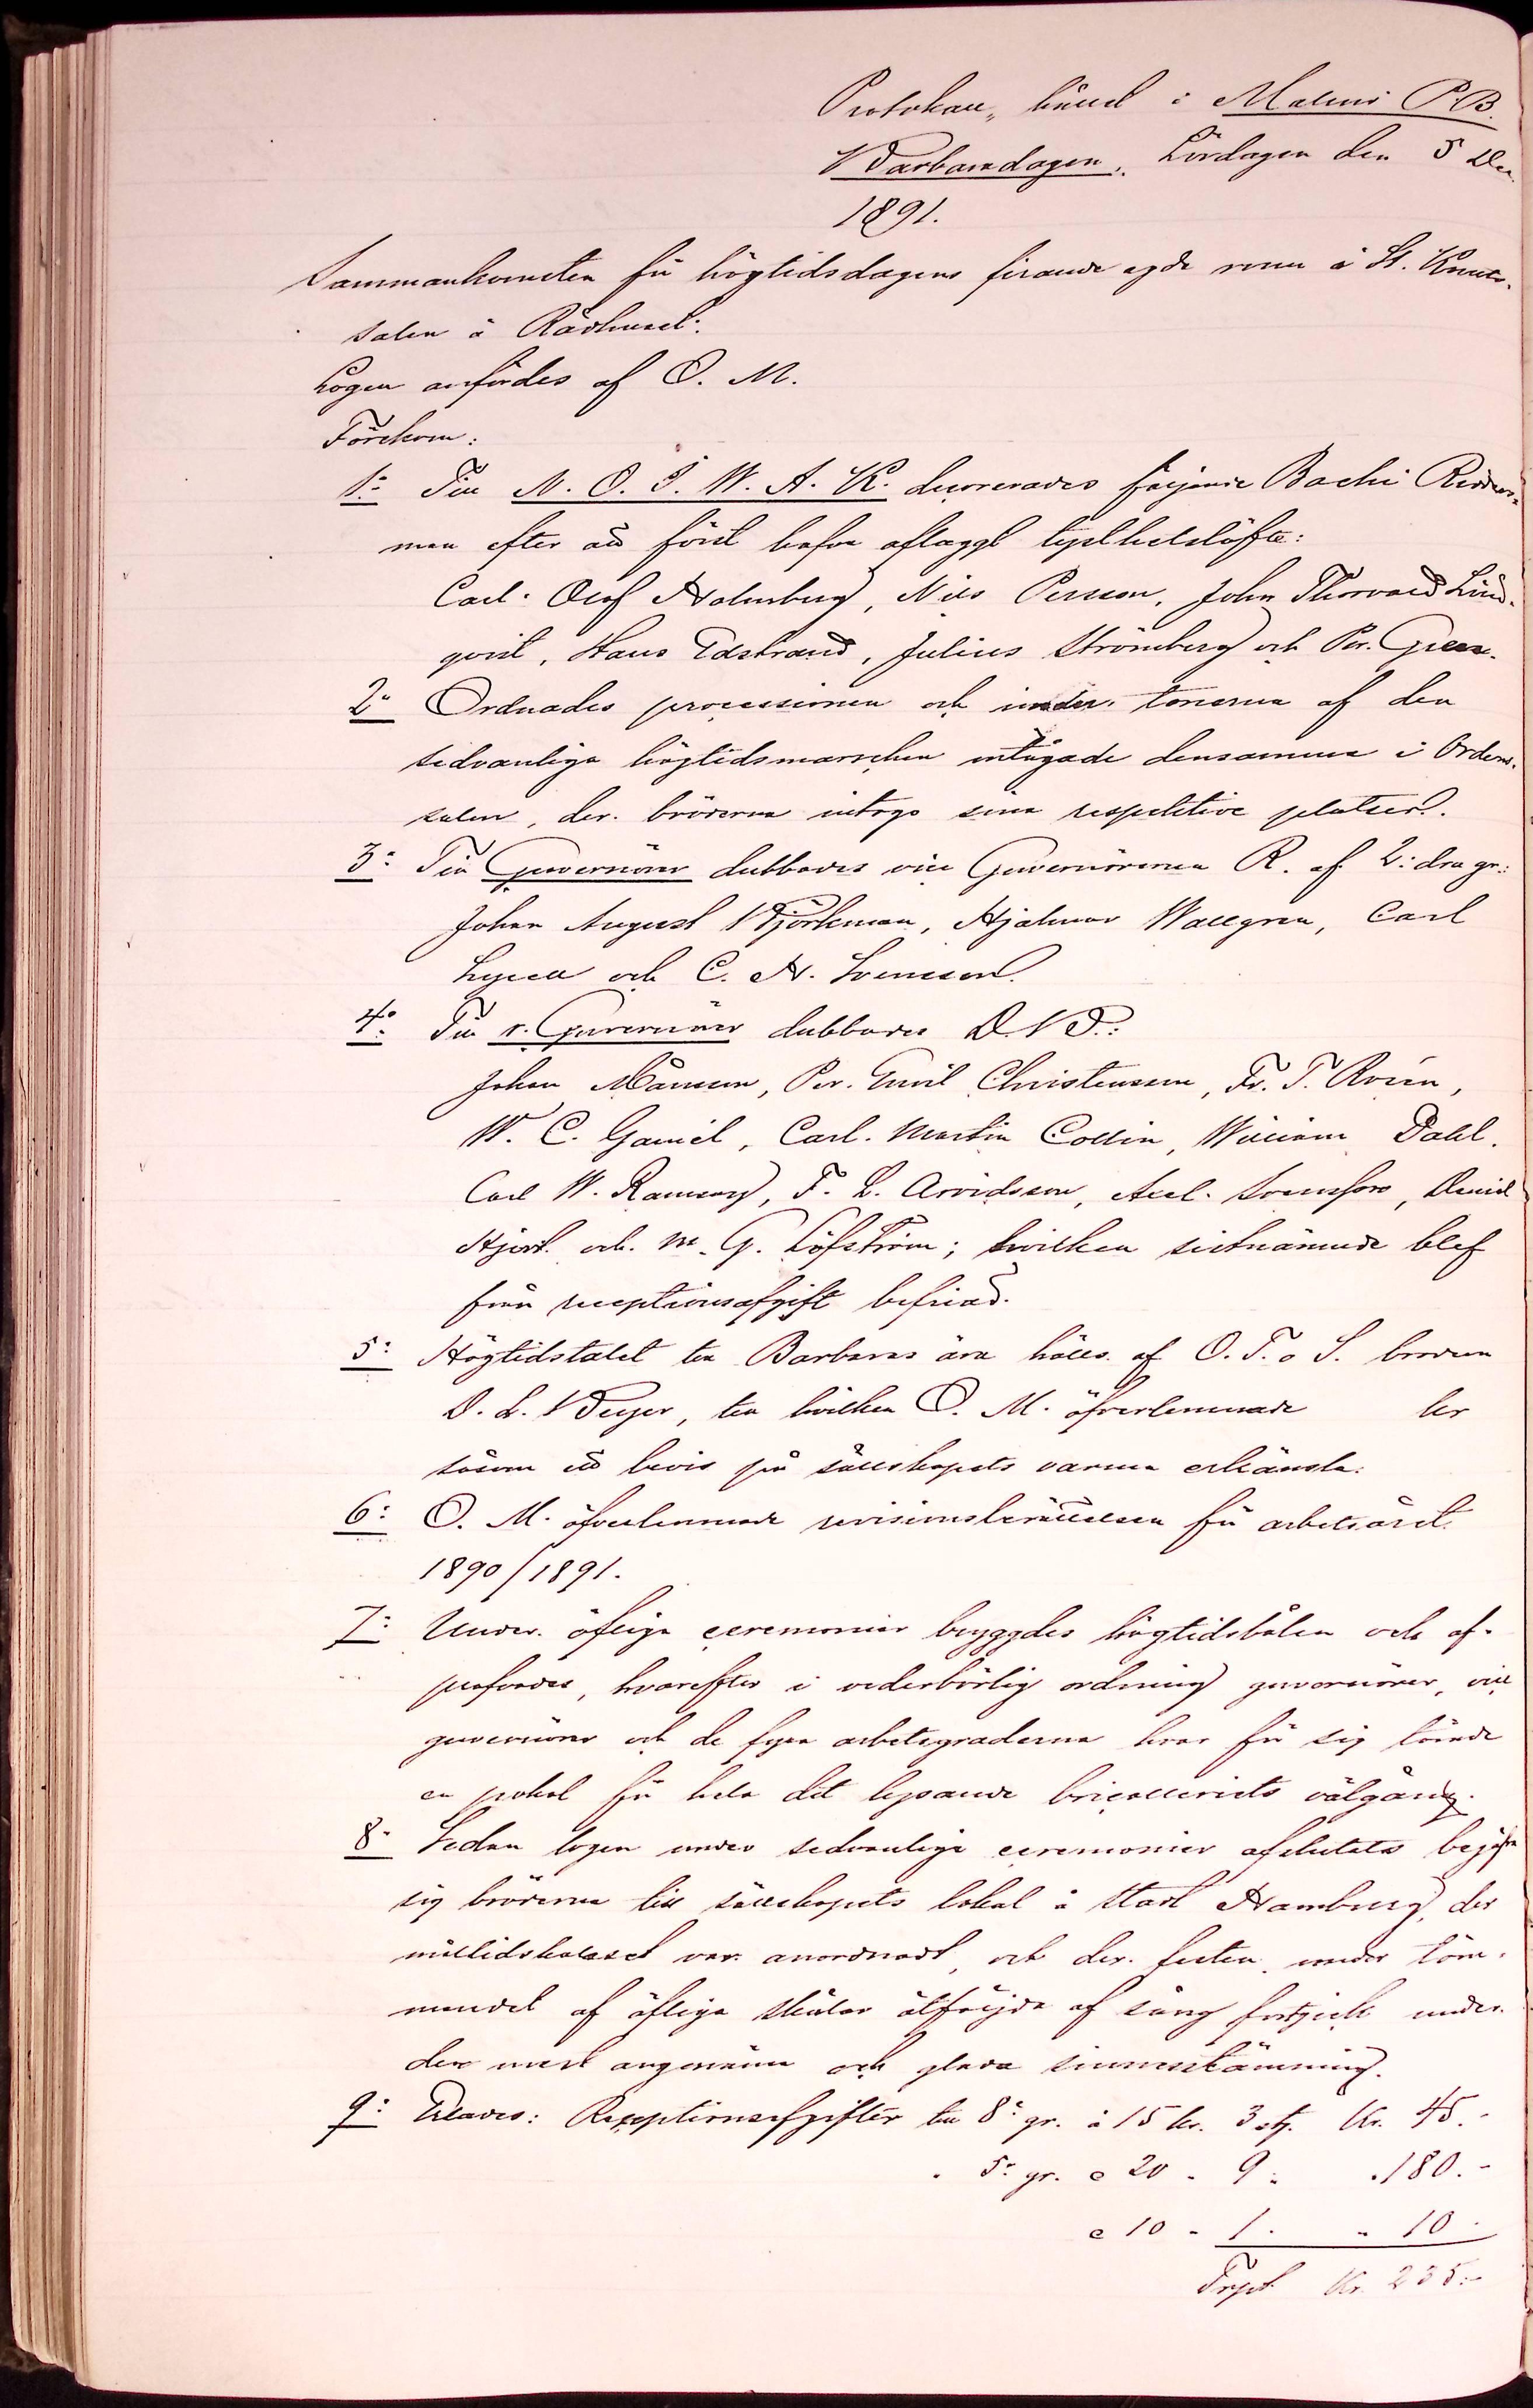 Protokoll, hållet i Malmö P.B.
Barbaradagen, Lördagen den 5 Dec.
1891.
Sammankomsten för högtidsdagens firande egde rum å St. Knuts-
salen å Rådhuset.
Logen anfördes af O. M.
Förekom:
1: Till N. O. S. W. A. K. dekorerades följande Bachi Ridders-
män efter att först hafva aflaggt tysthetslöfte:
Carl Olof Holmberg, Nils Persson, John Thorvald Lind-
qvist, Hans Edstrand, Julius Strömberg och Per Green.
2: Ordnades processionen och under tonerna af den
sedvanliga högtidsmarschen intågade densamma i Ordens-
salen, der bröderna intogo sina respektive platser.
3: Till Guvernörer dubbades vice Guvernörerna R. af 2:dra gr.:
Johan August Björkman, Hjalmar Wallgren, Carl
Lyell och C. H. Svensson.
4: Till v. Guvernörer dubbades D. B.:
Johan Månsson, Per Emil Christensen, Fr. T. Rosén,
W. C. Gamél, Carl Martin Collin, William Dahl,
Carl W. Ramberg, F. L. Arvidsson, Axel Svensson, David
Hjort och M. G. Löfström; hvilken sistnämnde blef
från receptionsafgift befriad.
5: Högtidstalet till Barbaras ära hölls af O. T. o S. brodern
D. L. Beijer, till hvilken O. M. öfverlemnade kr
såsom ett bevis på sällskapets varma erkänsla.
6: O. M. öfverlemnade revisionsberättelsen för arbetsåret
1890/1891.
7: Under öfliga ceremonier bryggdes högtidsbålen och af-
profvades, hvarefter i vederbörlig ordning guvernörer, vice
guvernörer och de fyra arbetsgraderna hvar för sig tömde
en pokal för hela det lysande bricolleriets välgång.
8: Sedan logen under sedvanliga ceremonier afslutats begåfvo
sig bröderna till sällskapets lokal å Stadt Hamburg, der
måltidskalaset var anordnadt, och der festen under töm-
mandet af öfliga skålar åtföljda af sång fortgick under
den mest angenäma och glada sinnesstämning.
9: Erlades: Receptionsafgifter till 8: gr. à 15 kr. 3 st. Kr. 45.-
" 5: gr. à 20 " 9 " " 180.-
à 10 " 1 " " 10.-
Trpt Kr. 235:-